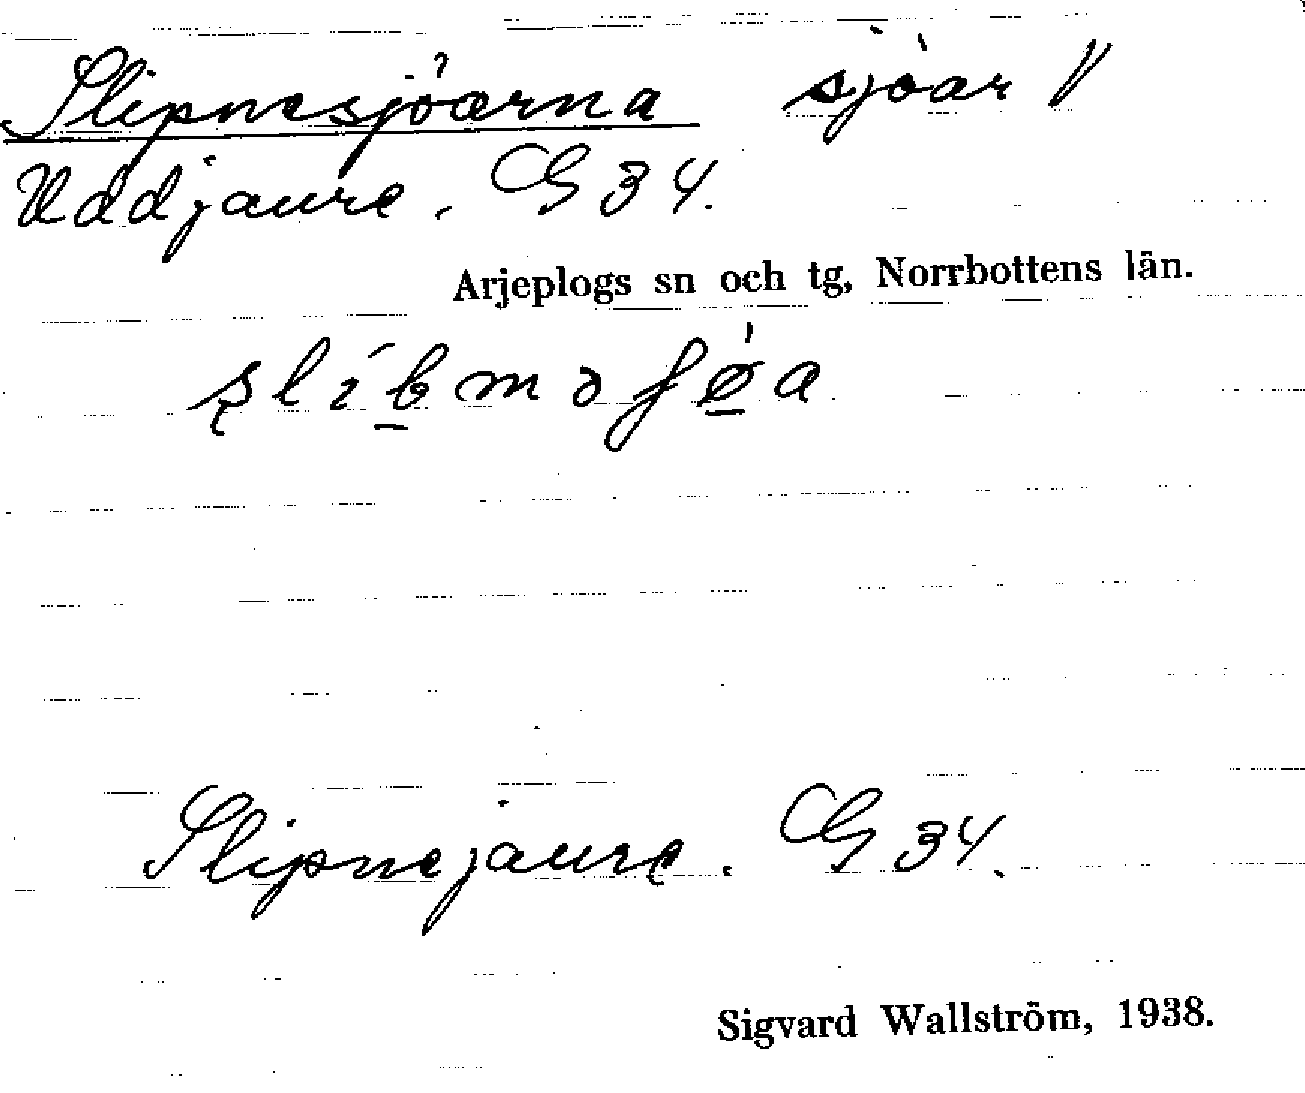 Slipnesjöarna sjöar V
Uddjaure. GS 34.
Arjeplogs sn och tg, Norrbottens län.
Slipnejaure. GS 34.
Sigvard Wallström, 1938.